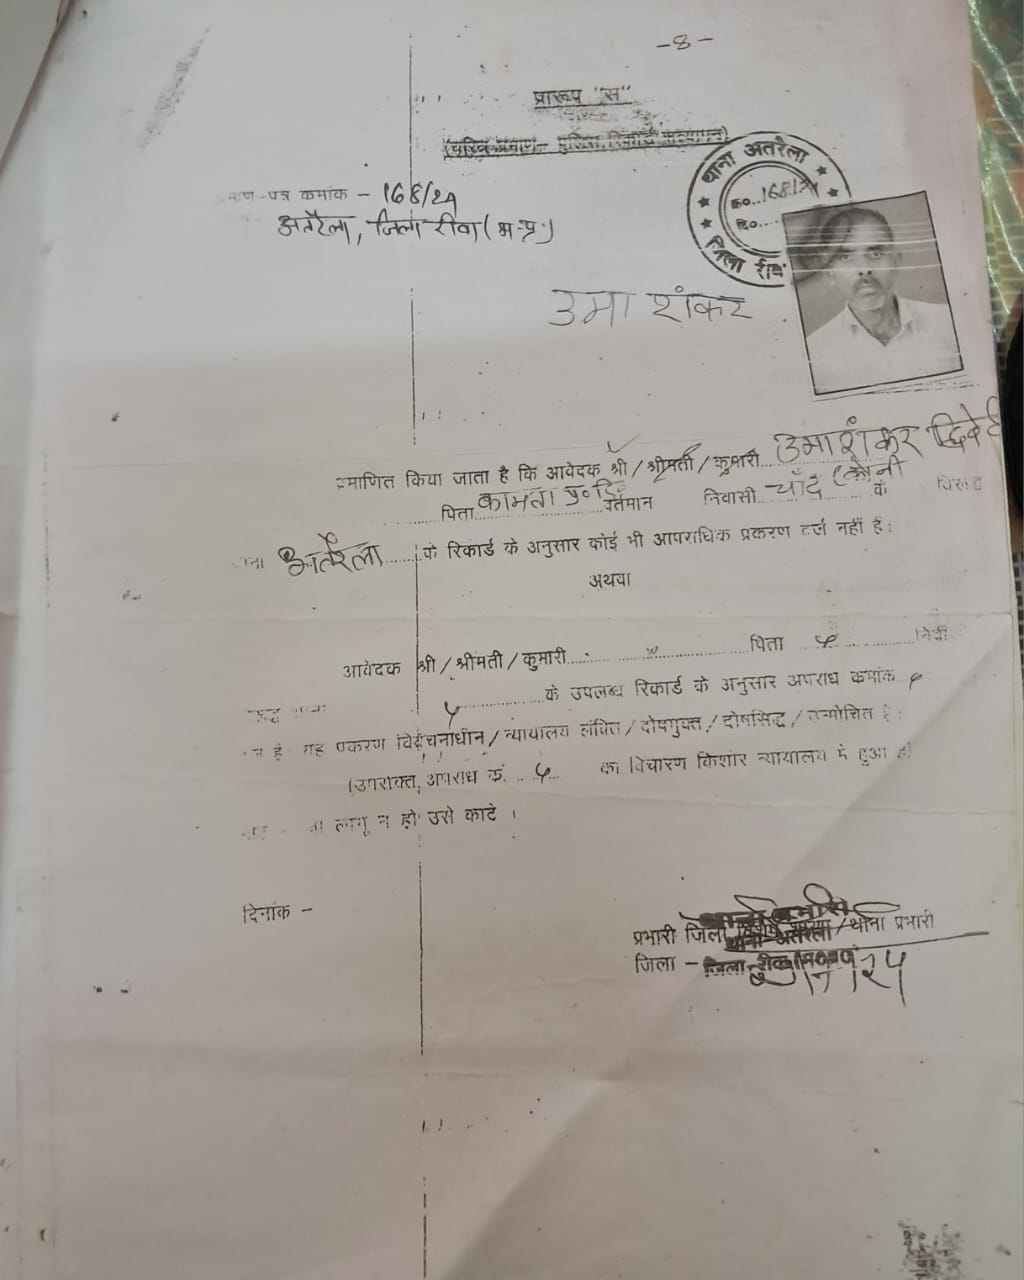 -8-
प्रारूप "स"
पत्र कमांक - 168/21
अतरैला, जिला रीवा (म.प्र.)
थाना अतरैला
क्र०.. 168/21
दि०....
जिला रीवा
उमा शंकर
प्रमाणित किया जाता है कि आवेदक श्री/श्रीमती/कुमारी... उमाशंकर द्विवेदी
पिता कामता प्र० वर्तमान निवासी चाँद के विरूद्ध
अतरैला ...... के रिकार्ड के अनुसार कोई भी आपराधिक प्रकरण दर्ज नहीं है।
अथवा
आवेदक श्री/श्रीमती/कुमारी.... " ....पिता
के उपलब्ध रिकार्ड के अनुसार अपराध कमांक
है यह प्रकरण विवेचनाधीन/न्यायालय लंबित/दोषमुक्त/दोषसिद्ध/उन्मोचित है।
(उपरोक्त, अपराध कं. .... का विचारण किशोर न्यायालय में हुआ है)
लागू न हो उसे काटे ।
दिनांक -
प्रभारी जिला विशेष शाखा/थाना प्रभारी
थाना अतरैला
जिला -